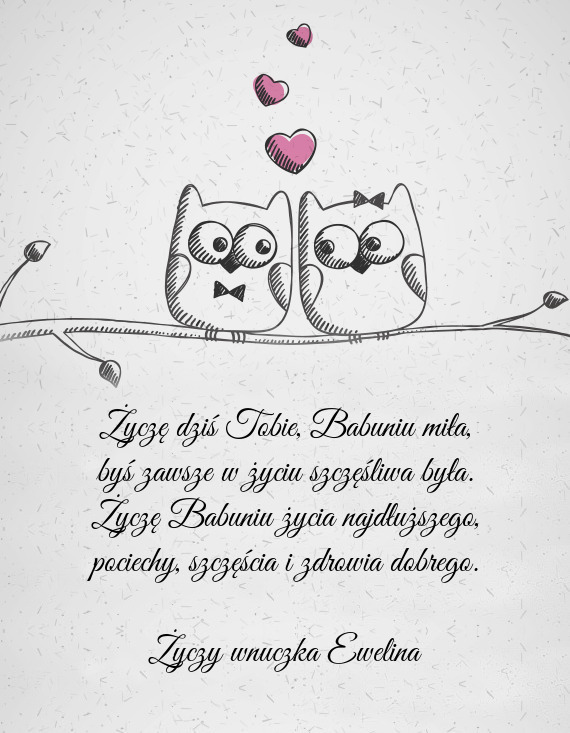 Życzę dziś Tobie, Babuniu miła,
byś zawsze w życiu szczęśliwa była.
Życzę Babuniu życia najdłuższego,
pociechy, szczęścia i zdrowia dobrego.
Życzy wnuczka Ewelina